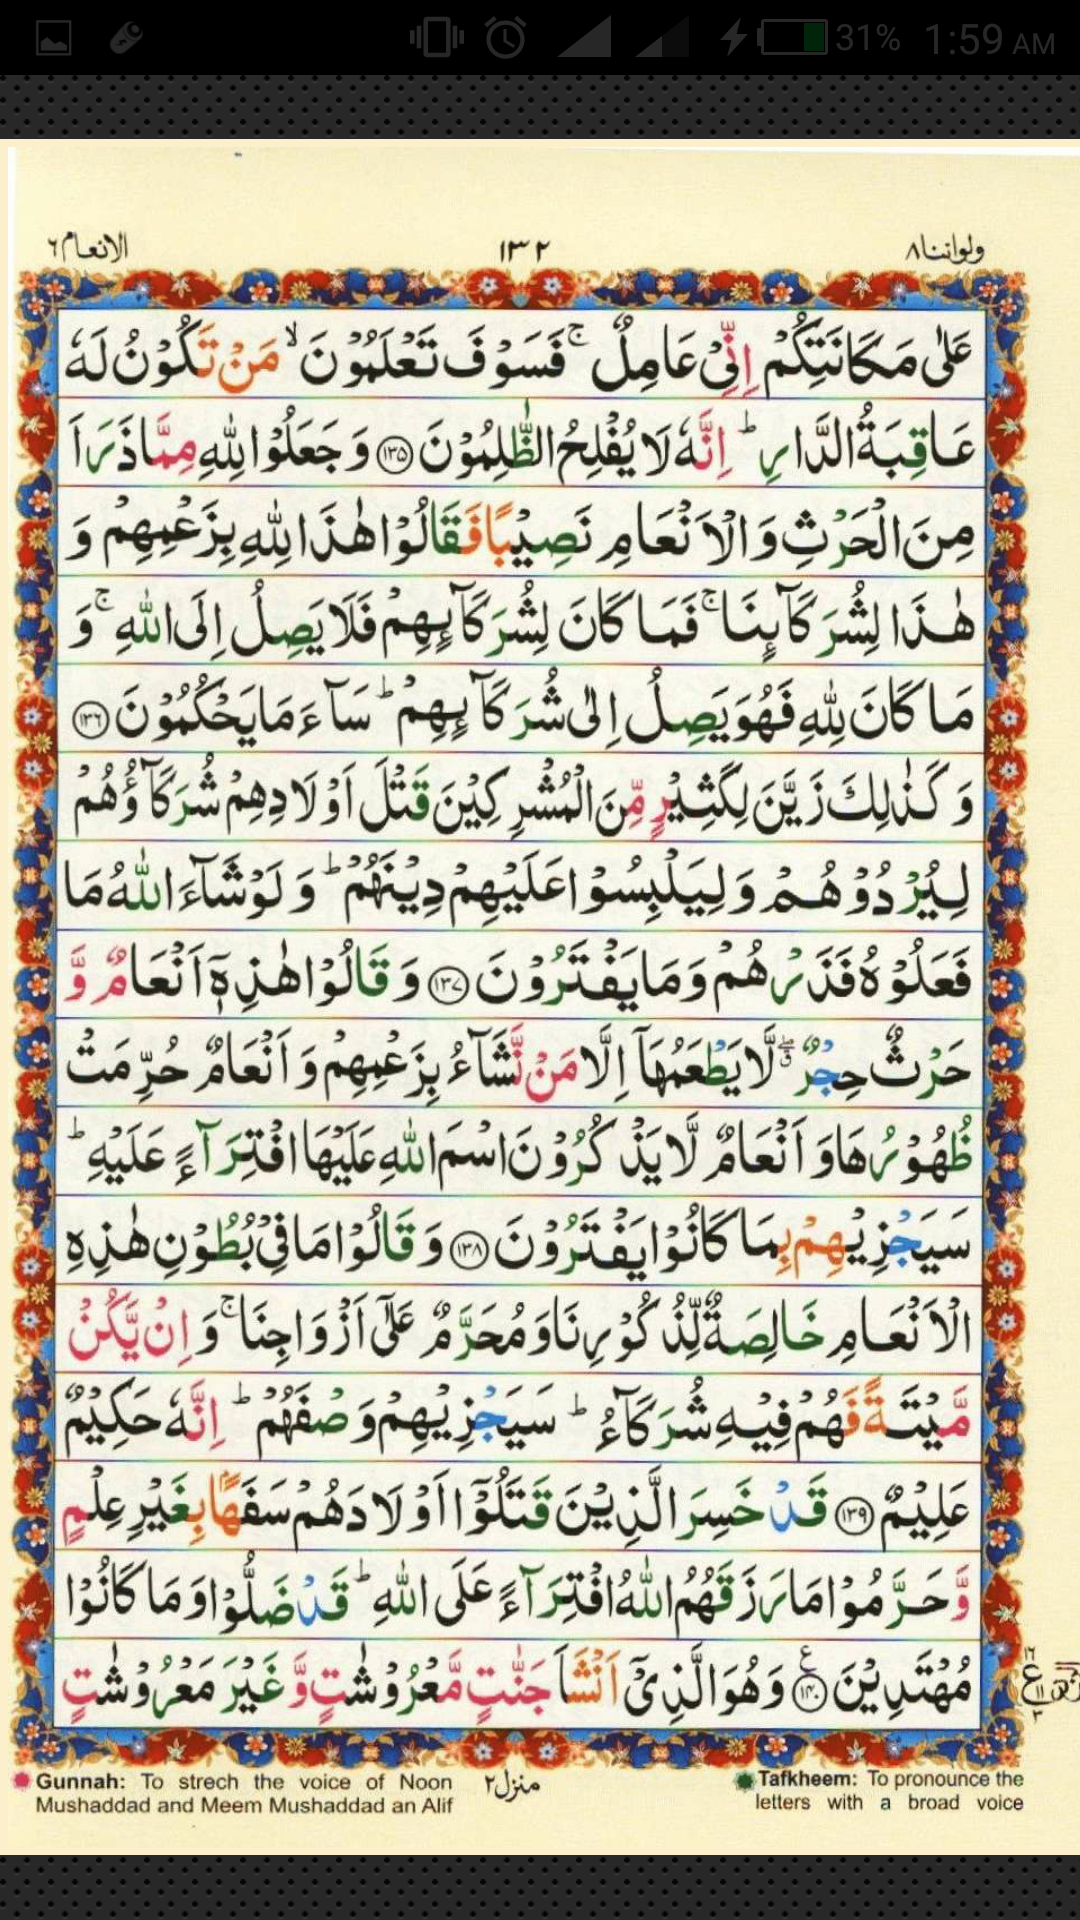 31% 1:59 AM
ولواننا ٨ ١٣٢ الانعام ٦
عَلٰى مَكَانَتِكُمْ اِنِّىْ عَامِلٌ ۚ فَسَوْفَ تَعْلَمُوْنَ ۙ مَنْ تَكُوْنُ لَهٗ
عَاقِبَةُ الدَّارِ ؕ اِنَّهٗ لَا يُفْلِحُ الظّٰلِمُوْنَ ﴿١٣٥﴾ وَجَعَلُوْا لِلّٰهِ مِمَّا ذَرَاَ
مِنَ الْحَرْثِ وَالْاَنْعَامِ نَصِيْبًا فَقَالُوْا هٰذَا لِلّٰهِ بِزَعْمِهِمْ وَ
هٰذَا لِشُرَكَآئِنَا ۚ فَمَا كَانَ لِشُرَكَآئِهِمْ فَلَا يَصِلُ اِلَى اللّٰهِ ۚ وَ
مَا كَانَ لِلّٰهِ فَهُوَ يَصِلُ اِلٰى شُرَكَآئِهِمْ ؕ سَآءَ مَا يَحْكُمُوْنَ ﴿١٣٦﴾
وَكَذٰلِكَ زَيَّنَ لِكَثِيْرٍ مِّنَ الْمُشْرِكِيْنَ قَتْلَ اَوْلَادِهِمْ شُرَكَآؤُهُمْ
لِيُرْدُوْهُمْ وَلِيَلْبِسُوْا عَلَيْهِمْ دِيْنَهُمْ ؕ وَلَوْ شَآءَ اللّٰهُ مَا
فَعَلُوْهُ فَذَرْهُمْ وَمَا يَفْتَرُوْنَ ﴿١٣٧﴾ وَقَالُوْا هٰذِهٖٓ اَنْعَامٌ وَّ
حَرْثٌ حِجْرٌ ۖق لَّا يَطْعَمُهَآ اِلَّا مَنْ نَّشَآءُ بِزَعْمِهِمْ وَاَنْعَامٌ حُرِّمَتْ
ظُهُوْرُهَا وَاَنْعَامٌ لَّا يَذْكُرُوْنَ اسْمَ اللّٰهِ عَلَيْهَا افْتِرَآءً عَلَيْهِ ؕ
سَيَجْزِيْهِمْ بِمَا كَانُوْا يَفْتَرُوْنَ ﴿١٣٨﴾ وَقَالُوْا مَا فِىْ بُطُوْنِ هٰذِهِ
الْاَنْعَامِ خَالِصَةٌ لِّذُكُوْرِنَا وَمُحَرَّمٌ عَلٰٓى اَزْوَاجِنَا ۚ وَاِنْ يَّكُنْ
مَّيْتَةً فَهُمْ فِيْهِ شُرَكَآءُ ؕ سَيَجْزِيْهِمْ وَصْفَهُمْ ؕ اِنَّهٗ حَكِيْمٌ
عَلِيْمٌ ﴿١٣٩﴾ قَدْ خَسِرَ الَّذِيْنَ قَتَلُوْٓا اَوْلَادَهُمْ سَفَهًۢا بِغَيْرِ عِلْمٍ
وَّحَرَّمُوْا مَا رَزَقَهُمُ اللّٰهُ افْتِرَآءً عَلَى اللّٰهِ ؕ قَدْ ضَلُّوْا وَمَا كَانُوْا
مُهْتَدِيْنَ ﴿١٤٠﴾ ع وَهُوَ الَّذِىْٓ اَنْشَاَ جَنّٰتٍ مَّعْرُوْشٰتٍ وَّغَيْرَ مَعْرُوْشٰتٍ
Gunnah: To strech the voice of Noon
Mushaddad and Meem Mushaddad an Alif
منزل ٢
Tafkheem: To pronounce the
letters with a broad voice